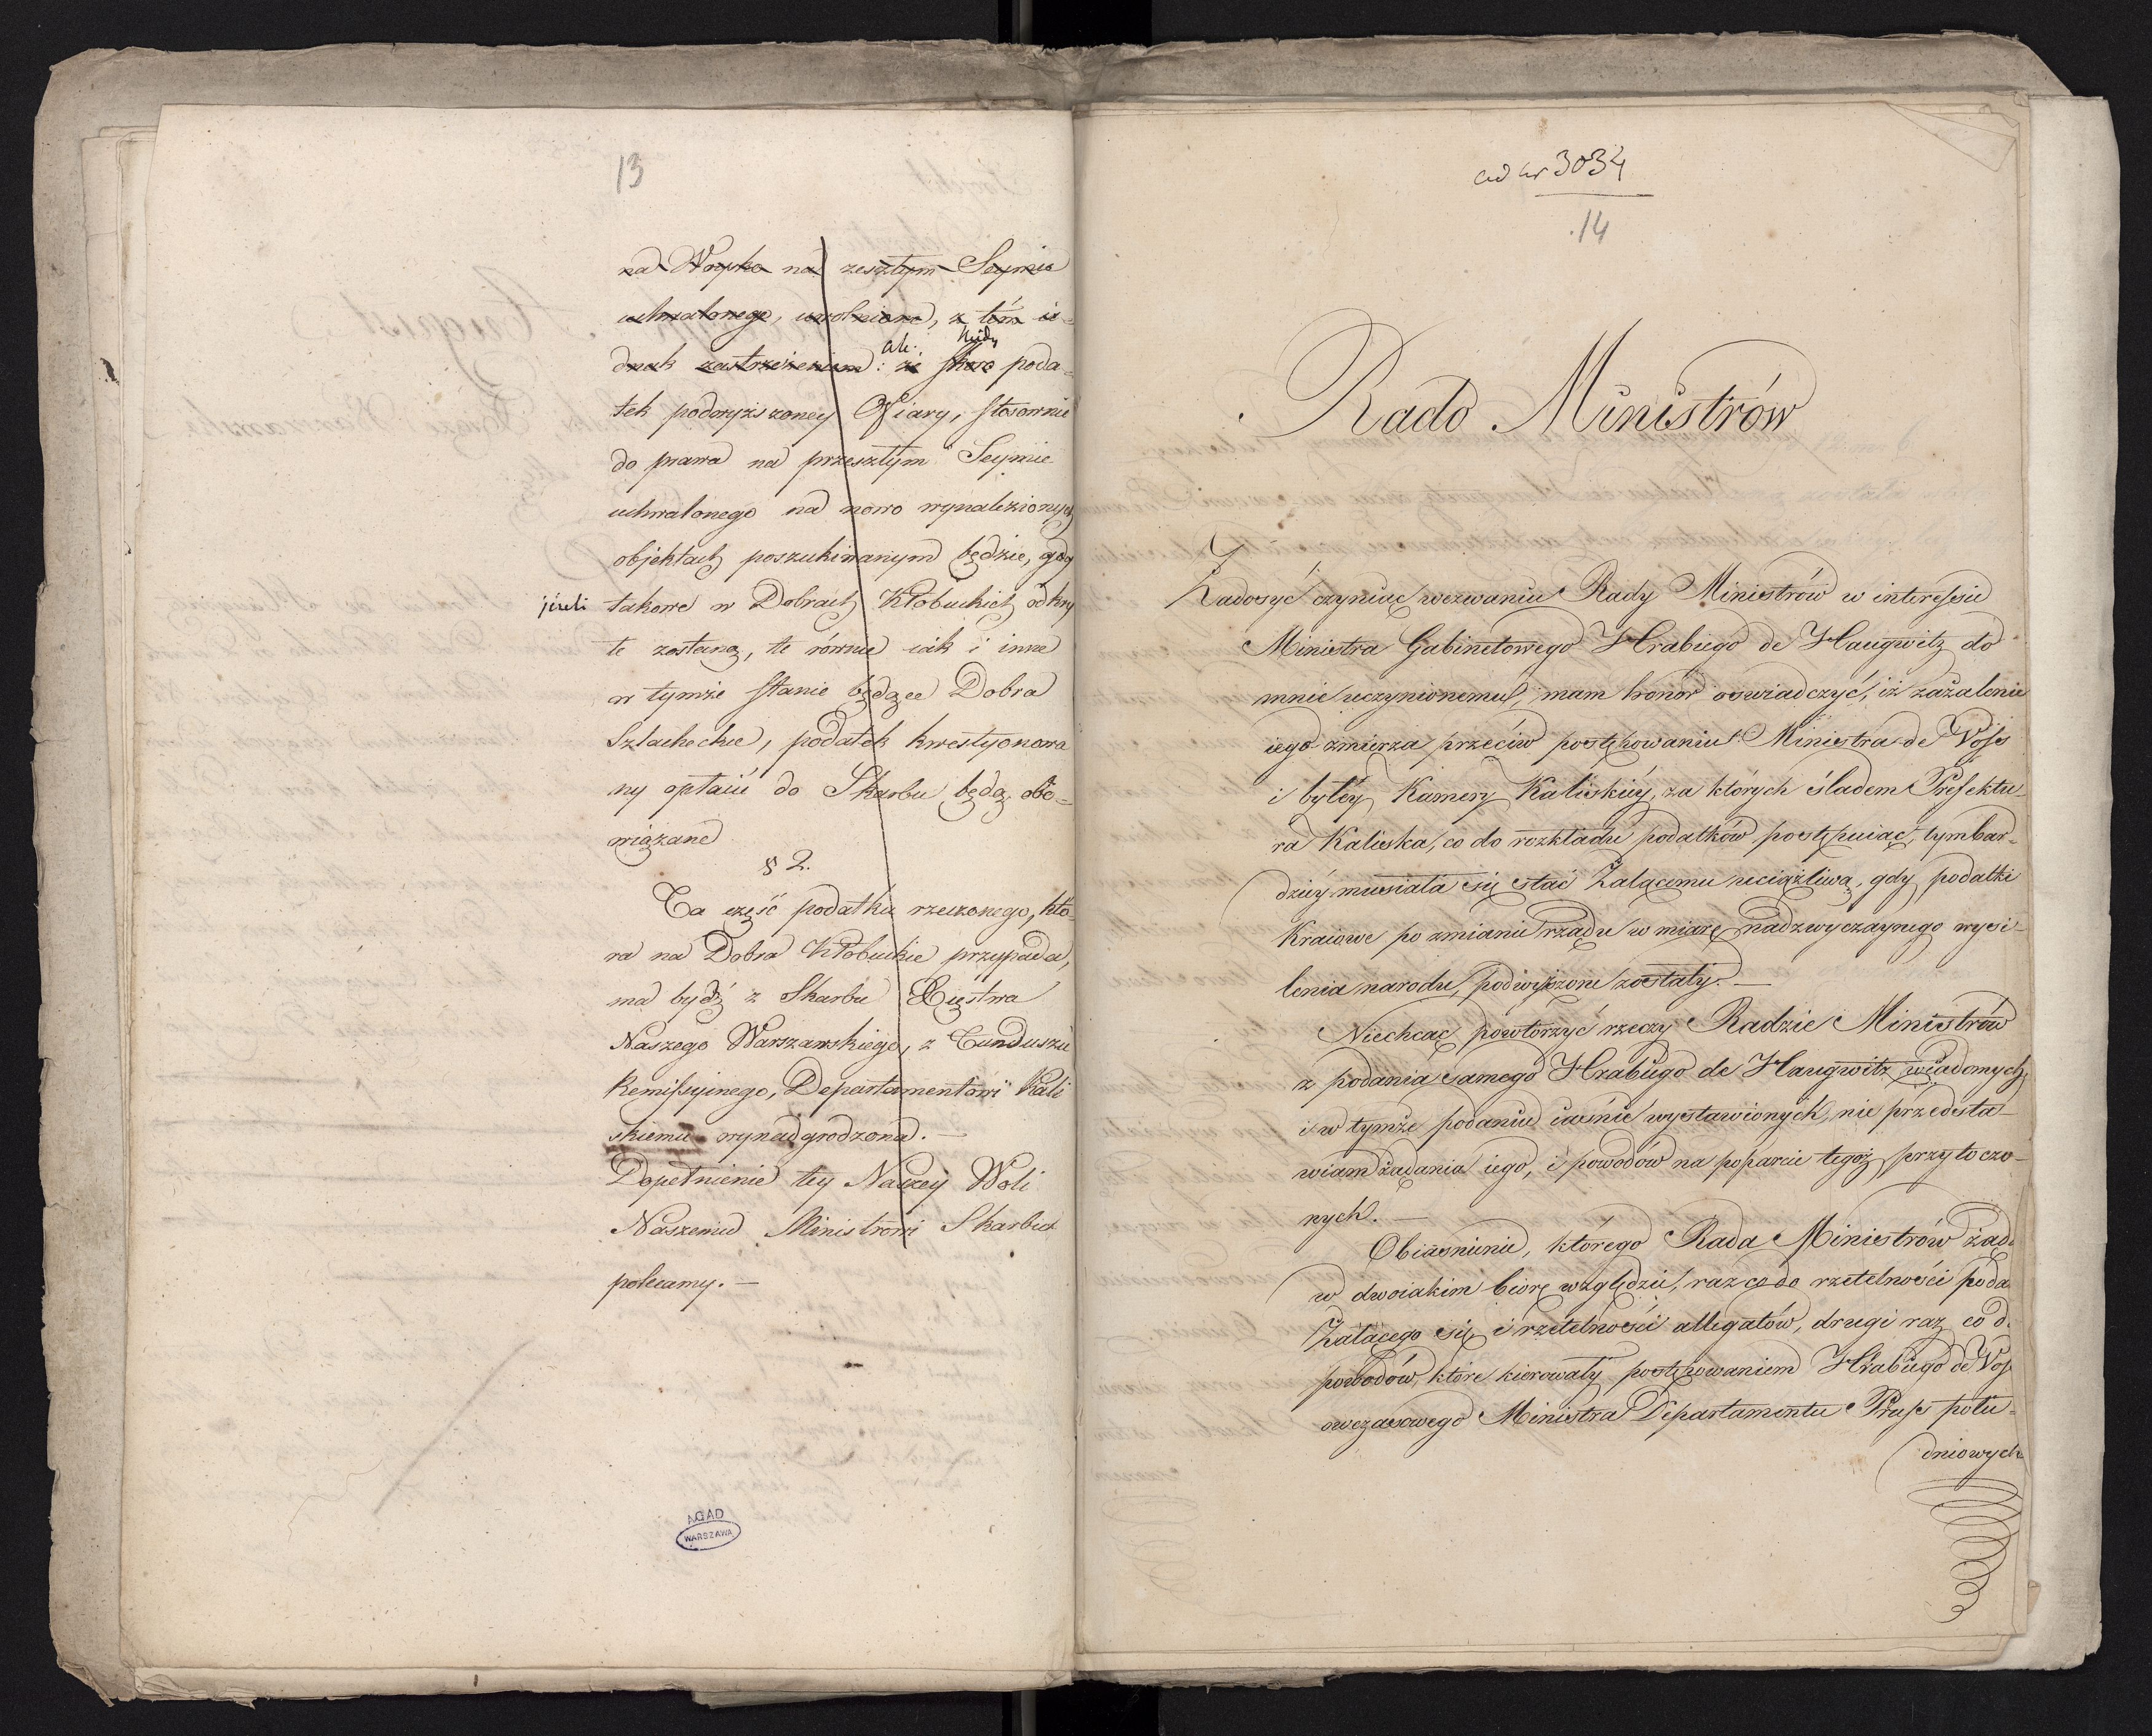 13
na Woysko na zeszłym Seymie
uchwalonego, uwolnione, z tém ie-
ale. kiedy
dnak zastrzeżeniem: że skoro poda-
tek podwyższoney Ofiary, stosownie
do prawa na przeszłym Seymie
uchwalonego na nowo wynalezionych
objektach poszukiwanym będzie, gdy
jéżeli takowe w Dobrach Kłobuckich odkry
te zostaną, te równie iak i inne
w tymże stanie będące Dobra
Szlacheckie, podatek kwestyonowa
ny opłacić do Skarbu będą obo-
wiązane
§ 2.
Ta część podatku rzeczonego, któ-
ra na Dobra Kłobuckie przypada,
ma bydź z Skarbu Xięstwa
Naszego Warszawskiego, z Funduszu
Remissyinego, Departamentowi Kali
skiemu wynadgrodzona. —
Dopełnienie tey Naszey Woli
Naszemu Ministrowi Skarbu
polecamy. —
AGAD
WARSZAWA
ad nr 3034
14
Rado Ministrów
Zadosyć czyniąc wezwaniu Rady Ministrów w interessie
Ministra Gabinetowego Hrabiego de Haugwitz do
mnie uczynionemu, mam honor oświadczyć, iż zażalenie
iego zmierza przeciw postępowaniu Ministra de Voss
i byłéy Kamery Kaliskiéy, za których śladem Prefektu-
ra Kaliska, co do rozkładu podatków postępuiąc, tymbar-
dziéy musiała się stać Żalącemu uciążliwą, gdy podatki
Kraiowe po zmianie rządu w miarę nadzwyczaynego wysi-
lenia narodu, podwyższone zostały. —
Niechcąc powtorzyć rzeczy Radzie Ministrów
z podania samego Hrabiego de Haugwitz wiadomych,
i w tymże podaniu iaśnie wystawionych, nie przedsta-
wiam żądania iego, i powodów na poparcie tegoż przytoczo-
nych. —
Obiaśnienie, którego Rada Ministrów żąda
w dwoiakim biorę względzie, raz co do rzetelności poda
Żalącego się i rzetelności allegatów, drugi raz co d
powodów, które kierowały postępowaniem Hrabiego de Vos
owczasowego Ministra Departamentu Pruss połu-
dniowych